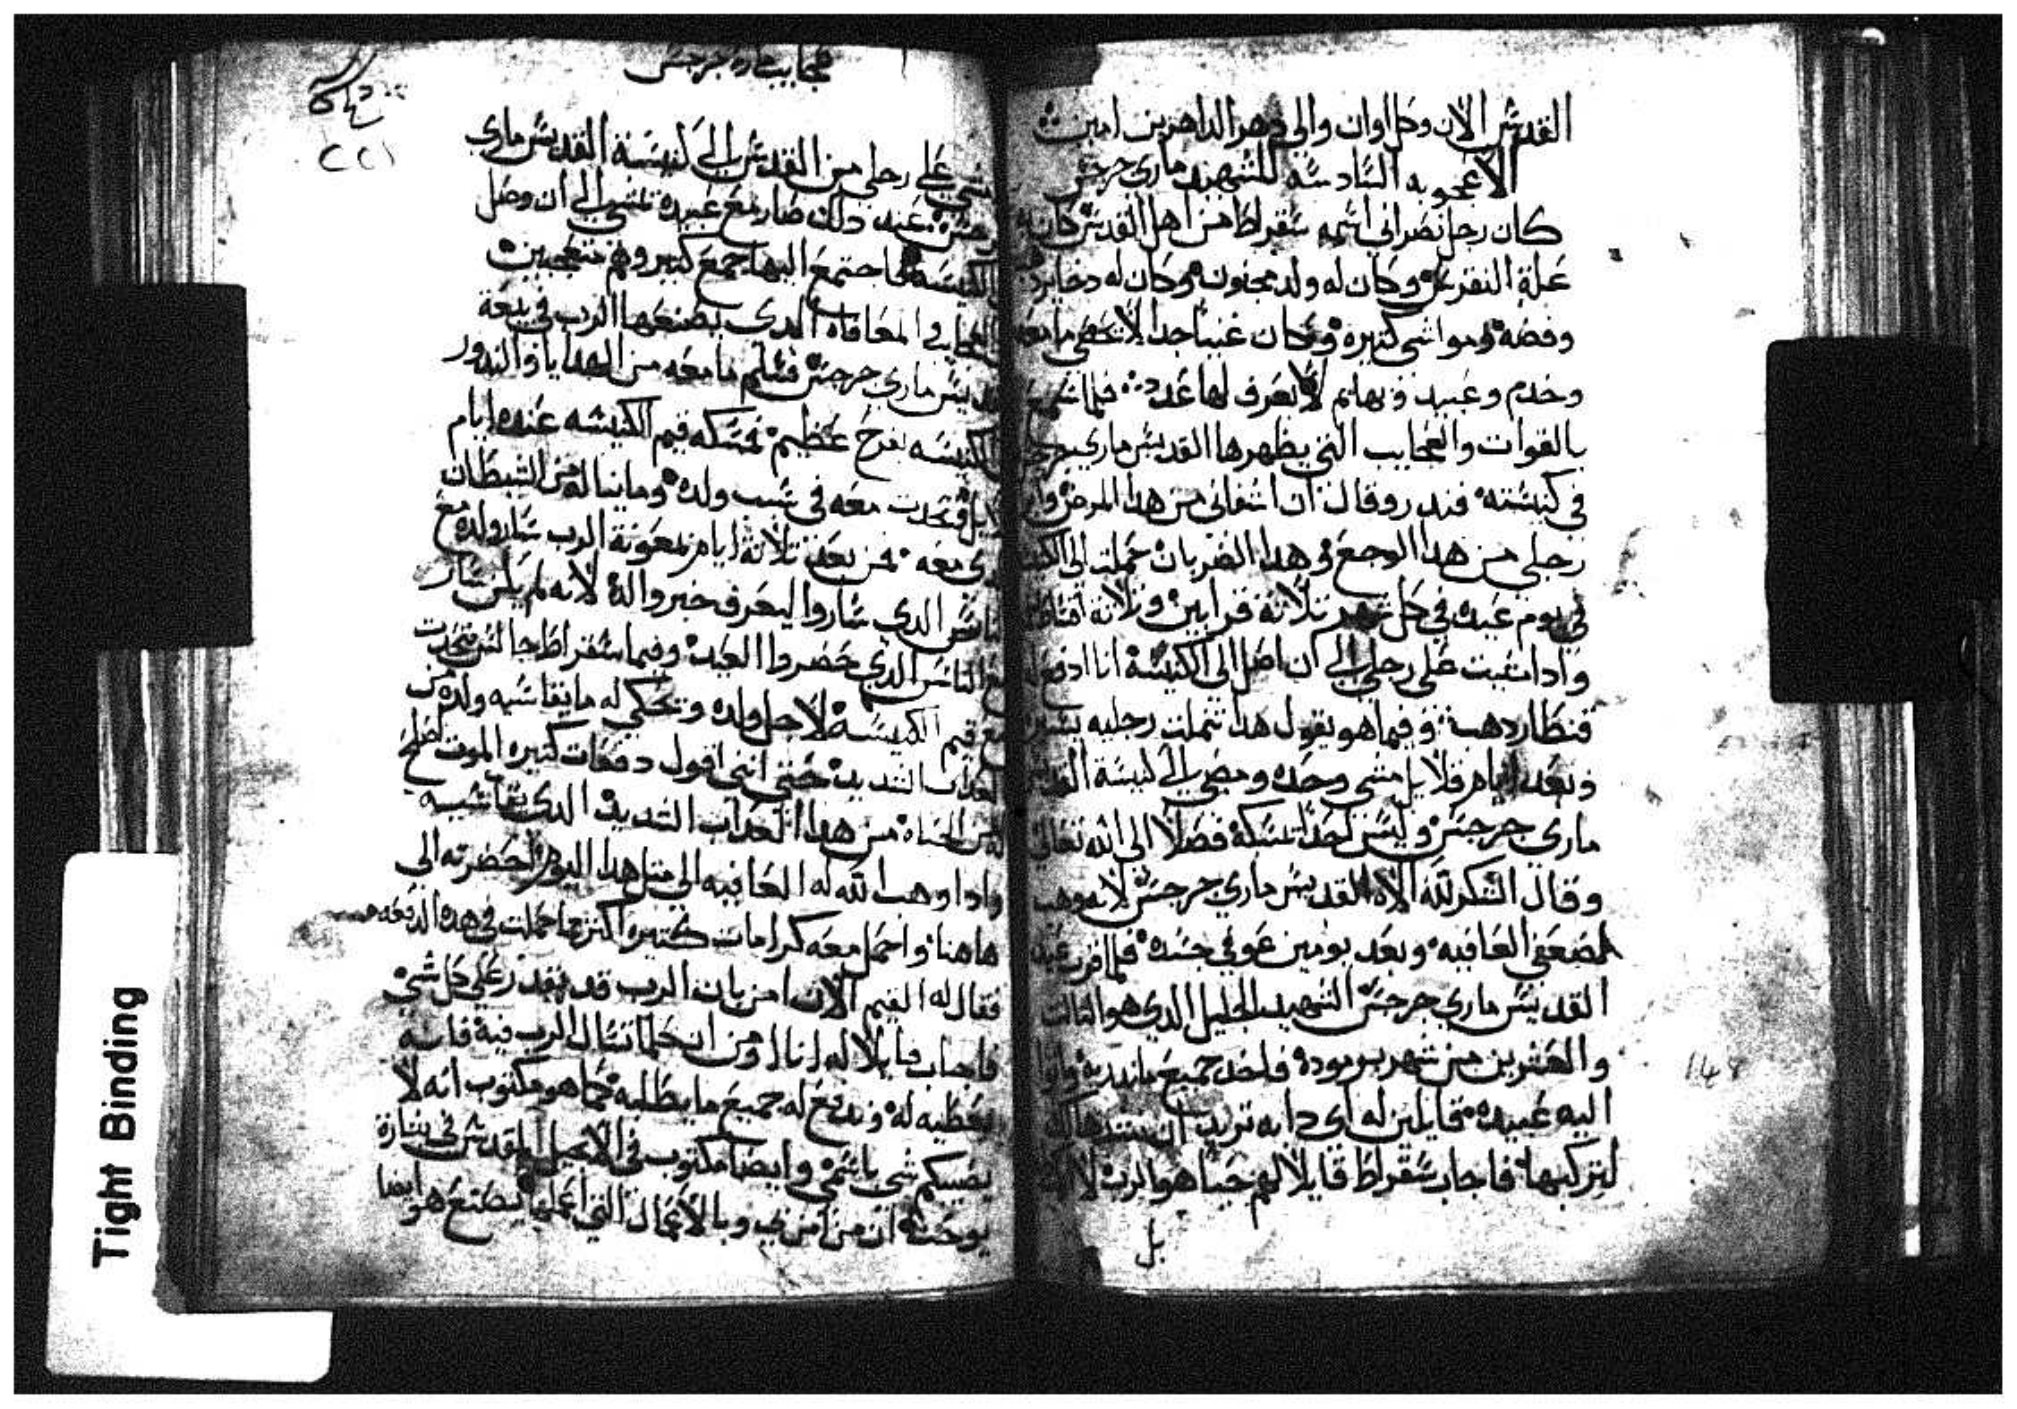 القديس الان وكل اوان والي دهر الداهرين امين
الاعجوبه السادسه للشهيد ماري جرجس
كان رجل نصراني اسمه سقراط من اهل القدس كان به
علة النقرس وكان له ولد مجنون وكان له دخاير
وفضه ومواشي كتيره وكان غنيا جدا لا تحصى ما معه
وخدم وعبيد وبهايم لا يعرف لها عدد فلما سمع
بالقوات والعجايب التي يظهرها القديس ماري جرجس
في كنيسته فندر وقال ان اشفاني من هدا المرض
رجلي من هدا الوجع وهدا الضربان حملت الى
في يوم عيده في كل شهر تلاتة قرابين وتلاتة
وادا مشيت على رجلي الى ان اصل الى الكنيسة انا ادفع
قنطار دهب وفيما هو يقول هدا رجليه
وبعد ايام قلايل مشي وحده ومضي الى كنيسة
ماري جرجس وليس احدا يمسكه فصلا الى الله تعالى
وقال الشكر لله الاه القديس ماري جرجس لانه وهب
لضعفي العافيه وبعد يومين عوفي جسده فلما قرب عيد
القديس ماري جرجس الشهيد الجليل الدي هو التالت
والعشرين من شهر برموده فاخد جميع ما ندره
اليه عبيده قايلين له اي دابه تريد ان
لتركبها فاجاب سقراط قايلا لهم حيا هو الرب لا
بل
عجايب ماري جرجس
٢٢١
على رجلي من القدس الى كنيسة القديس ماري
عند دلك صار مع عبيده تمشي الى ان وصل
الكنيسه فاجتمع اليها جمع كتير وهم متعجبين
العجايب والمعافاه الدي يصنعها الرب في بيعة
ماري جرجس فسلم ما معه من الهدايا والندور
الكنيسه بفرح عظيم فمسكه قيم الكنيسه عنده ايام
وتحدت معه في سبب ولده وما يناله من الشيطان
معه فمن بعد تلاتة ايام بمعونة الرب سار ولده مع
الناس الدي ساروا ليعرف خبر والده لانه لم يكن سار
مع الناس الدي حضروا العيد وفيما سقراط جالس يتحدت
مع قيم الكنيسة لاجل ولده ويحكي له ما يقاسيه ولده من
العداب الشديد حتى انني اقول دفعات كتيره الموت اصلح
من الحياه من هدا العداب الشديد الدي يقاسيه
وادا وهب الله له العافيه الى متل هدا اليوم احضرته الى
هاهنا واحمل معه كرامات كتيره اكتر مما حملت في هده الدفعه
فقال له القيم الان امن بان الرب قد يقدر على كل شي
فاجاب قايلا له انا اومن ان كلما تسال الرب فيه فانه
يعطيه له ويدفع له جميع ما يطلبه كما هو مكتوب انه لا
شي باسمي وايضا مكتوب في الانجيل المقدس في بشارة
يوحنا ان من امن بي وبالاعمال التي اعملها يصنع هو ايضا
١٤٨
Tight Binding